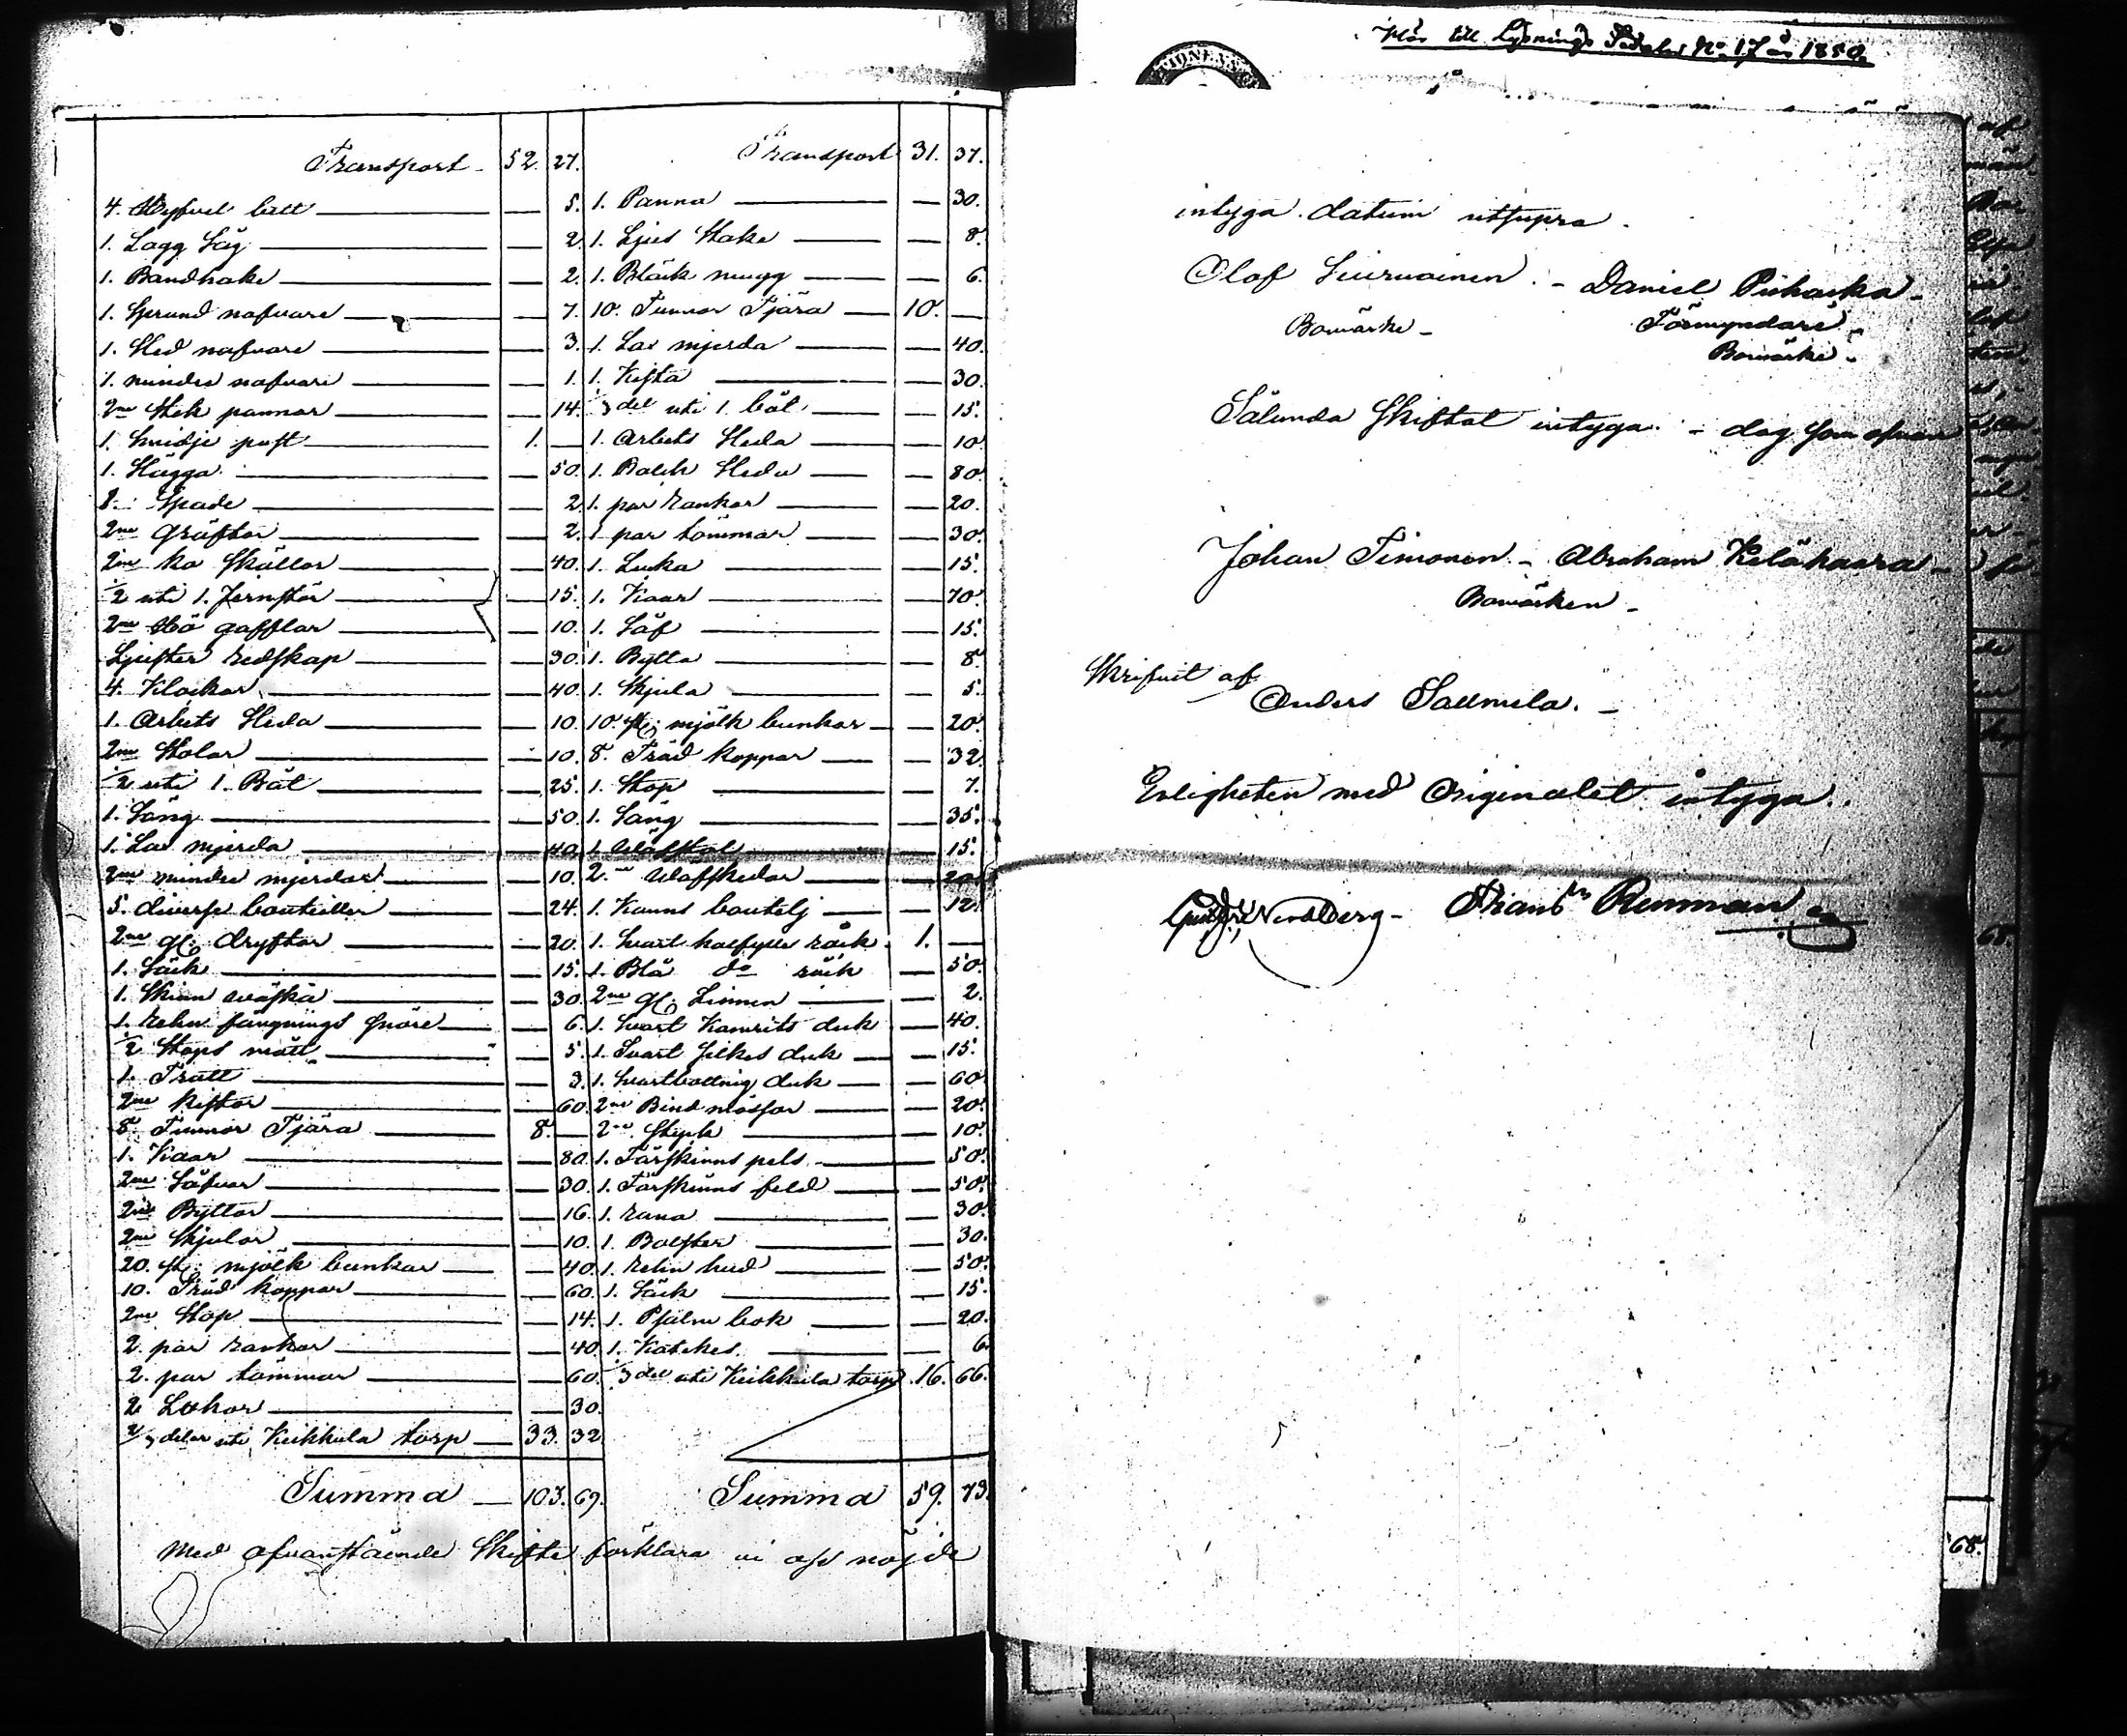 Transport 52. 27.
4. Hyfvel bett — 5.
1. Lagg Såg — 2.
1. Bandhake — 2.
1. Sprund nafvare — 7.
1. Sled nafvare — 3.
1. mindre nafvare — 1.
2ne Stek pannor — 14.
1. Smidje pust 1. —
1. Slägga — 50.
1. Spade — 2.
2ne Gräftor — 2.
2ne ko skällor — 40.
1/2 uti 1. Jernstör — 15.
2ne Hö gafflar — 10.
Ljuster redskap — 30.
4. Klockor — 40.
1. Arbets Sleda — 10.
2ne Stolar — 10.
1/2 uti 1. Båt — 25.
1. Säng — 50.
1. Lax mjerda — 40.
2ne mindre mjerdar — 10.
5. diverse bouteiller — 24.
2ne gl. Dryftor — 20.
1. Säck — 15.
1. Skinn wäska — 30.
1. Rehn fångnings snöre — 6.
1/2 Stops mått — 5.
1. Tratt — 3.
2ne kistor — 60.
8. Tunnor Tjära 8. —
1. Kaar — 80.
2ne Såfvar — 30.
2ne Byttor — 16.
2ne Skjulor — 10.
20. st. mjölk bunkar — 40.
10. Träd koppar — 60.
2ne Stop — 14.
2. par rankor — 40.
2. par tömmar — 60.
2 Lokor — 30.
2/3 delar uti Keikkula torp — 33. 32
Summa — 103. 69.
Transport 31. 37.
1. Panna — 30.
1. Ljus Stake — 8.
1. Bläck mugg — 6.
10. Tunnor Tjära — 10. —
1. Lax mjerda — 40.
1. Kista — 30.
1/3 del uti 1. båt — 15.
1. Arbets Sleda — 10
1. Balck Sleda — 80.
1. par rankor — 20.
1 par tömmar — 30.
1. Luka — 15.
1. Kaar — 70.
1. Såf — 15.
1. Bytta — 8.
1. Skjula — 5.
10. st. mjölk bunkar — 20.
8. Träd koppar — 32.
1. Stop — 7.
1. Säng — 35.
1. Wäfstol — 15.
2.ne Wäfskedar — 20.
1. Kanns boutelj — 12.
1. Svart halfylle råck 1. —
1. Blå do råck — 50.
2ne gl. Linnen — 2.
1. Svart Kamrits duk — 40.
1. Svart silkes duk — 15.
1. Svartbottnig duk — 60.
2ne Bindmössor — 20.
2ne Stycke — 10.
1. Fårskinns pels — 50.
1. Fårskinns feld — 50.
1. rana — 30.
1. Bolster — 30.
1. Rehn hud — 50.
1. Säck — 15.
1. Psalm bok — 20.
1. Katekes — 6
1/3 del uti Keikkula torp 16. 66.
Summa 59. 73.
Med ofvanstående Skifte förklara vi oss nöjde
Hör till Lysnings Sedeln No 17 år 1850.
intyga. datum utsupra.
Olof Liuruainen. - Daniel Pichaska -
Bomärke - Förmyndare
Bomärke -
Sålunda Skiftat intyga. - dag som ofvan
Johan Timonen. - Abraham Kelähaara -
Bomärken -
Skrifvit af
Anders Salmela. -
Enligheten med Originalet intyga.
Nordberg - Frans Renman
68.